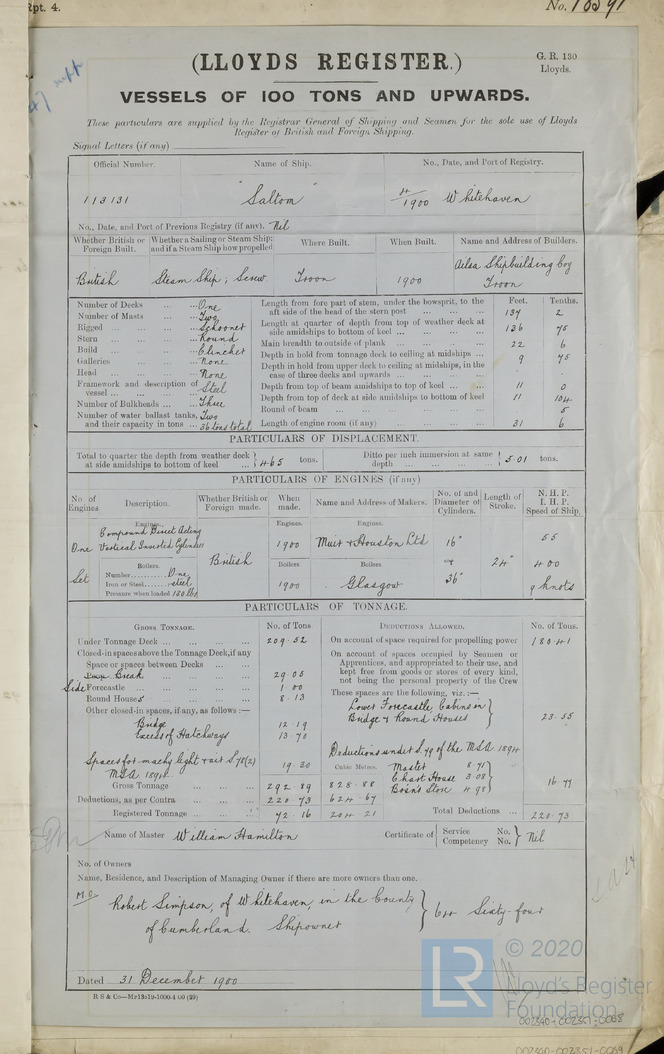 Rpt. 4.
No. 10591
(LLOYDS REGISTER.)
G. R. 130
Lloyds.
VESSELS OF 100 TONS AND UPWARDS.
These particulars are supplied by the Registrar General of Shipping and Seamen for the sole use of Lloyds
Register of British and Foreign Shipping.
Signal Letters (if any)
Official Number. Name of Ship. No., Date, and Port of Registry.
113131 "Saltom" 4/1900 Whitehaven
No., Date, and Port of Previous Registry (if any). Nil
Whether British or Foreign Built. Whether a Sailing or Steam Ship; and if a Steam Ship how propelled Where Built. When Built. Name and Address of Builders.
British Steam Ship; Screw Troon 1900 Ailsa Shipbuilding Coy Troon
Number of Decks ... ... One
Number of Masts ... ... Two
Rigged ... ... Schooner
Stern ... ... Round
Build ... ... Clincher
Galleries ... ... None
Head ... ... None
Framework and description of vessel ... ... Steel
Number of Bulkheads ... Three
Number of water ballast tanks, and their capacity in tons ... Two 36 tons total
Feet. Tenths.
Length from fore part of stem, under the bowsprit, to the aft side of the head of the stern post ... 137 2
Length at quarter of depth from top of weather deck at side amidships to bottom of keel ... 136 75
Main breadth to outside of plank ... 22 6
Depth in hold from tonnage deck to ceiling at midships ... 9 75
Depth in hold from upper deck to ceiling at midships, in the case of three decks and upwards ...
Depth from top of beam amidships to top of keel ... 11 0
Depth from top of deck at side amidships to bottom of keel 11 104
Round of beam ... 5
Length of engine room (if any) ... 31 6
PARTICULARS OF DISPLACEMENT.
Total to quarter the depth from weather deck at side amidships to bottom of keel ... 465 tons.
Ditto per inch immersion at same depth ... 5.01 tons.
PARTICULARS OF ENGINES (if any)
No. of Engines Description. Whether British or Foreign made. When made. Name and Address of Makers. No. of and Diameter of Cylinders. Length of Stroke. N. H. P. I. H. P. Speed of Ship.
Engines. Engines. Engines.
One Compound Direct Acting Vertical Inverted Cylinders British 1900 Muir & Houston Ltd 16" 55
Set Boilers. Boilers Boilers 24" 400
Number One
Iron or Steel steel 1900 Glasgow 36" 9 knots
Pressure when loaded 130 lbs
PARTICULARS OF TONNAGE.
GROSS TONNAGE. No. of Tons
Under Tonnage Deck ... 209.52
Closed-in spaces above the Tonnage Deck, if any
Space or spaces between Decks ...
Break 29.05
Side Forecastle ... 1 00
Round Houses ... 8.13
Other closed-in spaces, if any, as follows:—
Bridge 12.19
Excess of Hatchways 13.70
Spaces for machy light & air S 78(2) M.S.A. 1894 19.30
Cubic Metres.
Gross Tonnage 292.89 828.88
Deductions, as per Contra ... 220 73 624.67
Registered Tonnage ... 72.16 204 21
DEDUCTIONS ALLOWED. No. of Tons.
On account of space required for propelling power 180.41
On account of spaces occupied by Seamen or
Apprentices, and appropriated to their use, and
kept free from goods or stores of every kind,
not being the personal property of the Crew
These spaces are the following, viz.:—
Lower Forecastle Cabins in
Bridge & Round Houses 23.55
Deductions under S.79 of the M.S.A 1894
Master 8.71
Chart House 3.08
Bosn's Store 4.98
16 77
Total Deductions ... 220.73
Name of Master William Hamilton Certificate of Service No. Competency No. Nil
No. of Owners
Name, Residence, and Description of Managing Owner if there are more owners than one.
M.O. Robert Simpson, of Whitehaven, in the County
of Cumberland. Shipowner
64 Sixty four
Dated 31 December 1900
R S & Co—
LR
© 2020
Lloyd's Register
Foundation
002340-002351-0088
002340-002351-0089